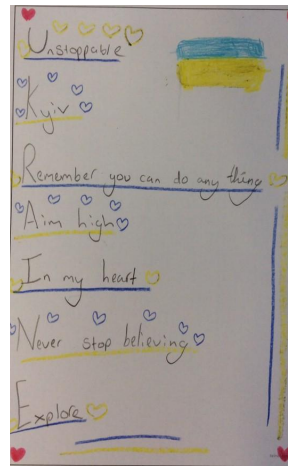 Unstoppable
Kyiv
Remember you can do any thing
Aim high
In my heart
Never stop believing
Explore